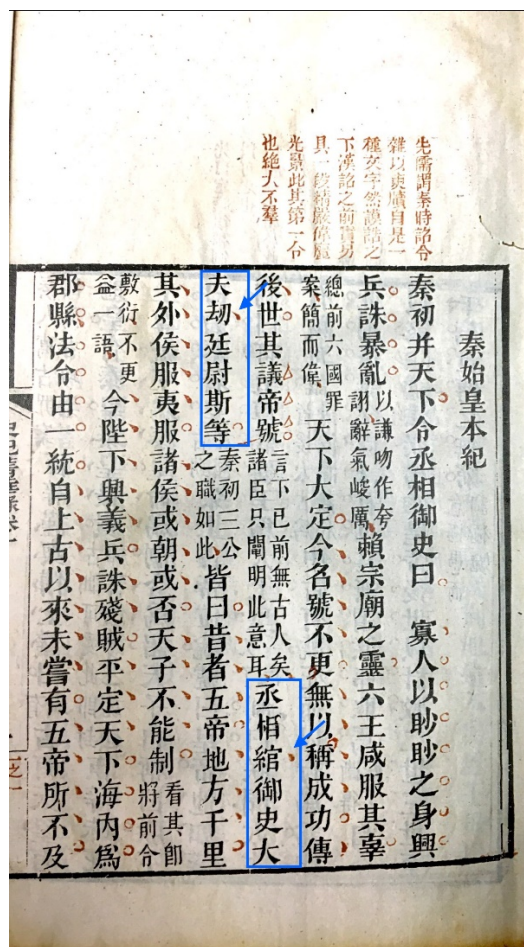 先儒謂秦時詔令
雜以吏牘自是一
種文字然謨誥之
下漢詔之前實另
具一段精嚴偉麗
光景此其第一令
也絕大不羣
秦始皇本紀
秦初并天下令丞相御史曰 寡人以眇眇之身興
兵誅暴亂以謙吻作夸詡辭氣峻厲賴宗廟之靈六王咸服其辜
總前六國罪案簡而偉天下大定今名號不更無以稱成功傳
後世其議帝號言下已前無古人矣諸臣只闡明此意耳丞相綰御史大
夫劫廷尉斯等秦初三公之職如此皆曰昔者五帝地方千里
其外侯服夷服諸侯或朝或否天子不能制看其卽將前令
敷衍不更益一語今陛下興義兵誅殘賊平定天下海內爲
郡縣法令由一統自上古以來未嘗有五帝所不及